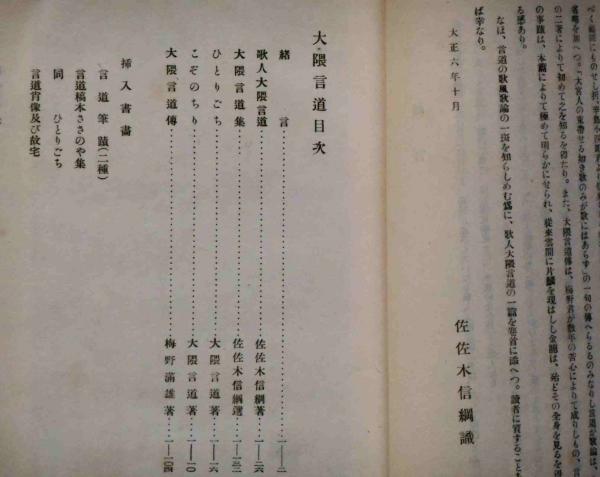 省略を加へつ。「大宮人の束帶せる如き歌のみが歌にはあらず」の一句の傳へらるるのみなりし言道が歌論は、
の二著によりて初めて之を知るを得たり。また、大隈言道傳は、梅野君が數年の苦心によりて成りしもの、言
の事蹟は、本篇によりて極めて明らかにせられ、從來雲間に片鱗を現はしし金龍は、殆どその全身を見るを得
る感あり。
なほ、言道の歌風歌論の一斑を知らしめむ爲に、歌人大隈言道の一篇を卷首に添へつ。讀者に資することも
ば幸なり。
大正六年十月
佐佐木信綱識
大隈言道目次
緒言 一―二
歌人大隈言道 佐佐木信綱著 一―二六
大隈言道集 佐佐木信綱選 一―一三二
ひとりごち 大隈言道著 一―一六
こぞのちり 大隈言道著 一―一〇
大隈言道傳 梅野滿雄著 一―一〇四
挿入書畵
言道筆蹟(二種)
言道稿本ささのや集
同 ひとりごち
言道肖像及び故宅